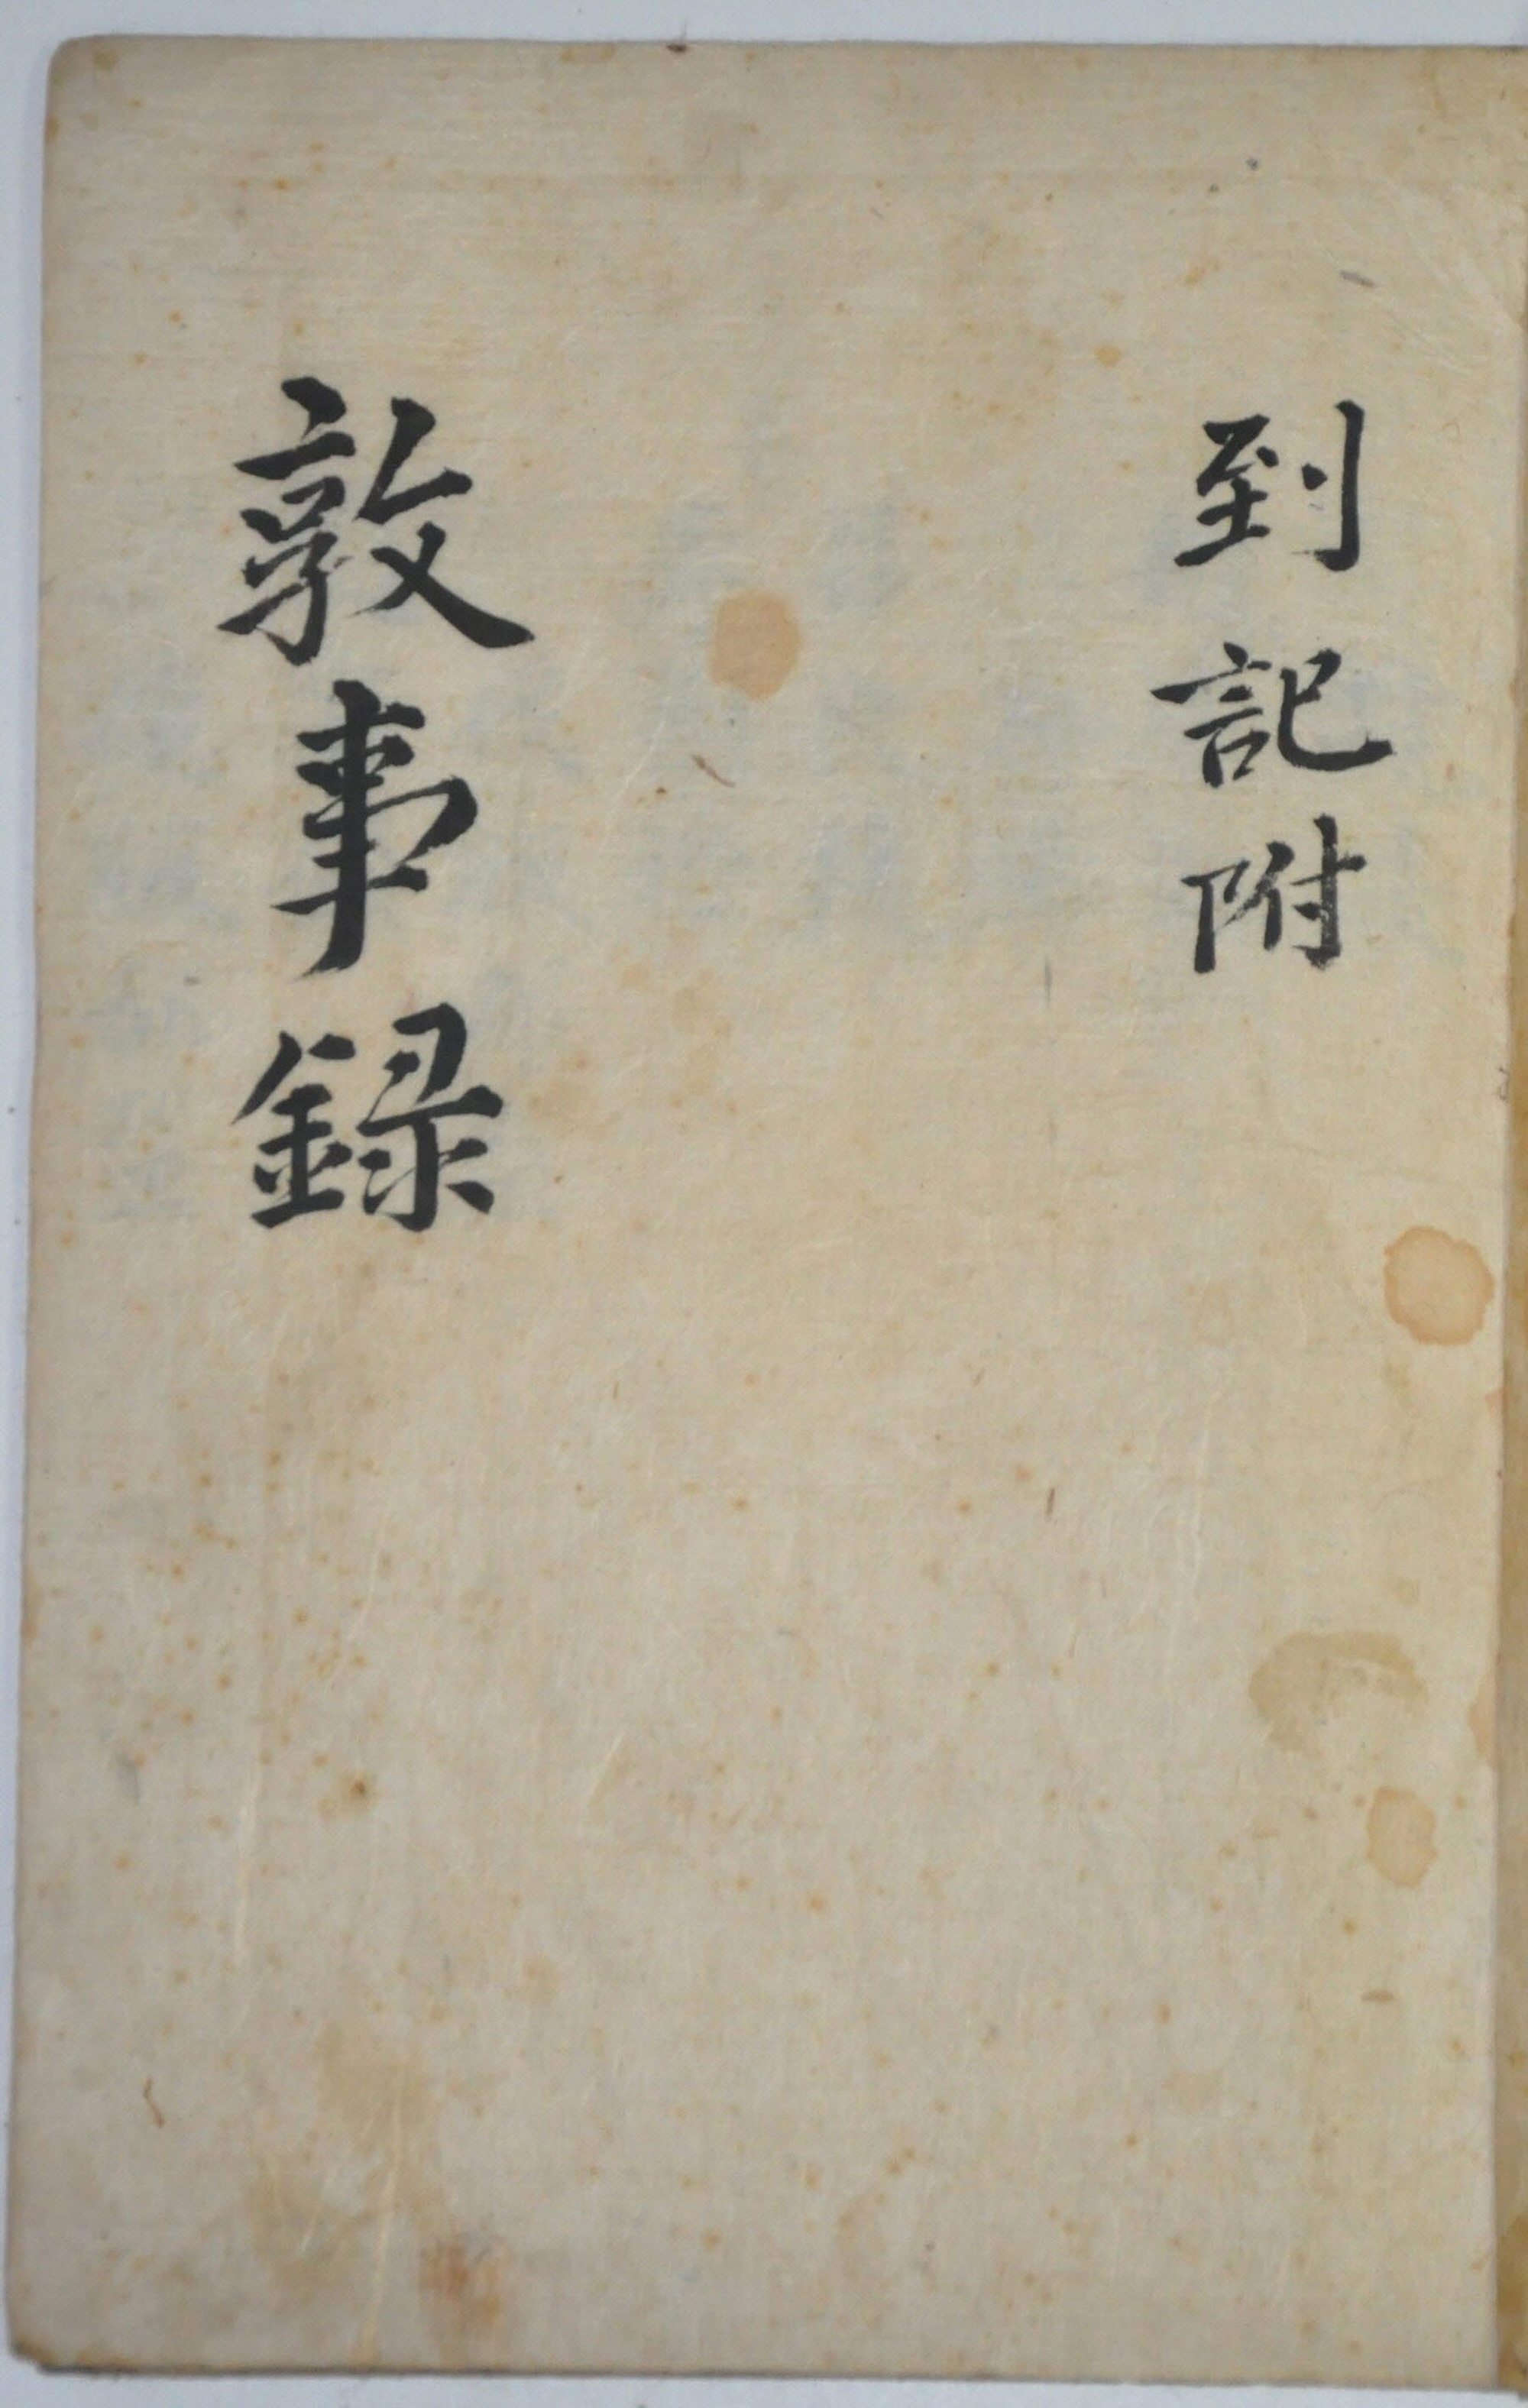 到記附
敦事錄